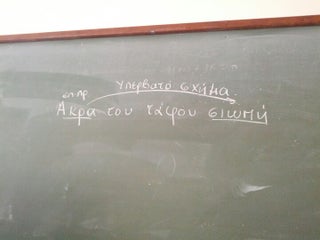 Υπερβατό σχήμα.
επιρ
Άκρα του τάφου σιωπή